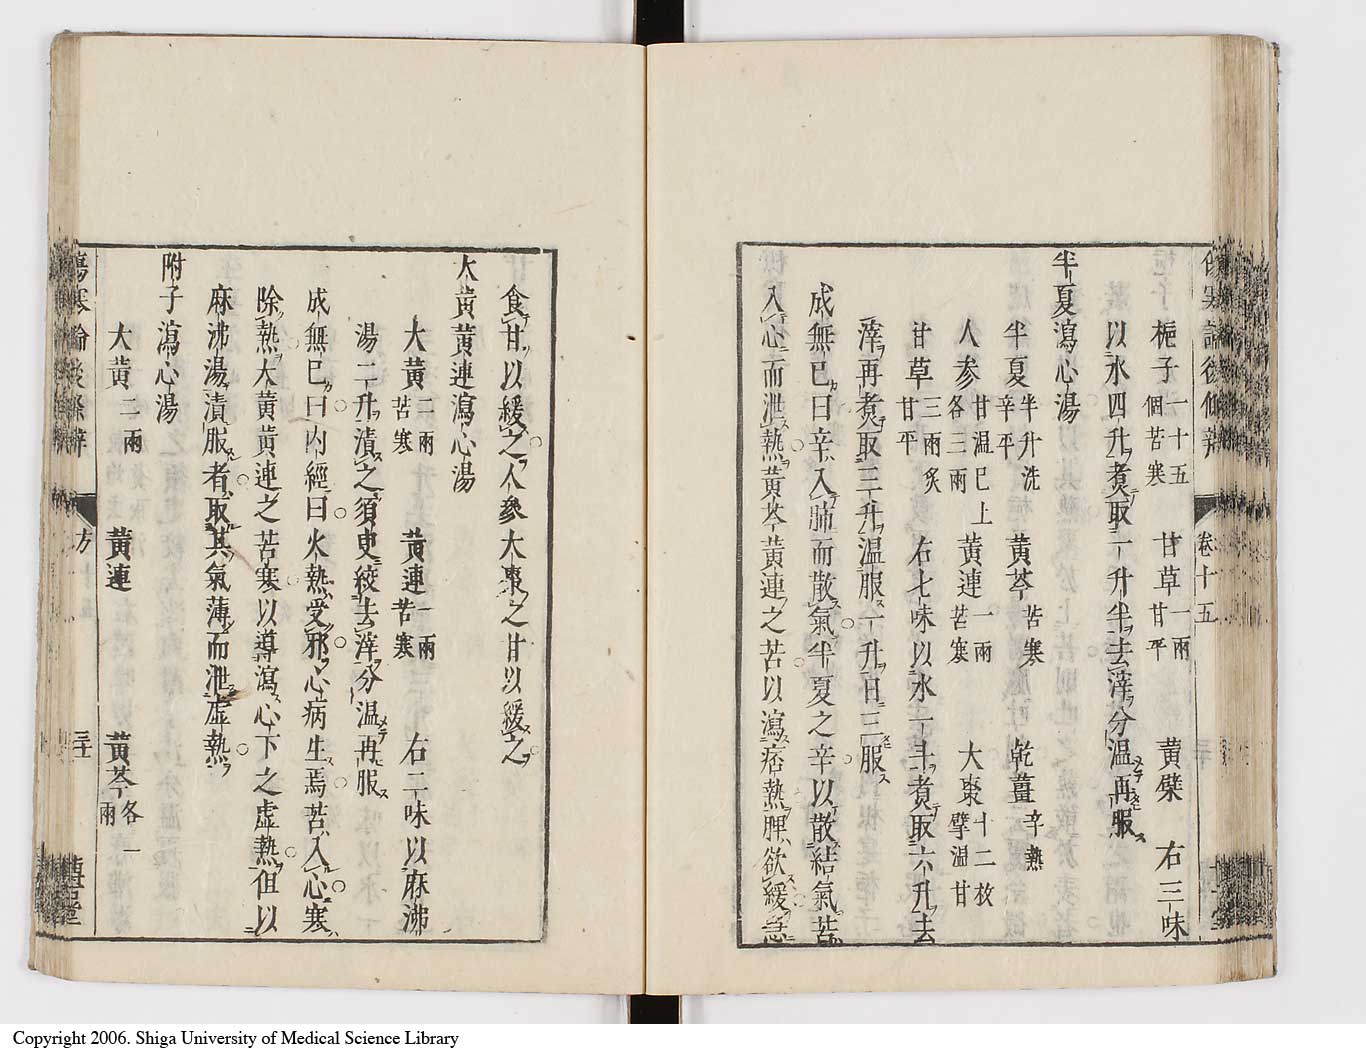 梔子一十五個苦寒 甘草一兩甘平 黃檗 右三味
以水四升煮取一升半去滓分温再服
半夏瀉心湯
半夏半升洗辛平 黃芩苦寒 乾薑辛熱
人参甘温已上各三兩 黃連一兩苦寒 大棗十二枚擘温甘
甘草三兩炙甘平 右七味以水一斗煮取六升去
滓再煮取三升温服一升日三服
成無已曰辛入肺而散氣半夏之辛以散結氣苦
入心而泄熱黃芩黃連之苦以瀉痞熱脾欲緩急
卷十五
食甘以緩之人參大棗之甘以緩之
大黃黃連瀉心湯
大黃二兩苦寒 黃連一兩苦寒 右二味以麻沸
湯二升漬之須臾絞去滓分温再服
成無已曰内經曰火熱受邪心病生焉苦入心寒
除熱大黃黃連之苦寒以導瀉心下之虛熱但以
麻沸湯漬服者取其氣薄而泄虛熱
附子瀉心湯
大黃二兩 黃連 黃芩各一兩
傷寒論後條辨 方
Copyright 2006. Shiga University of Medical Science Library